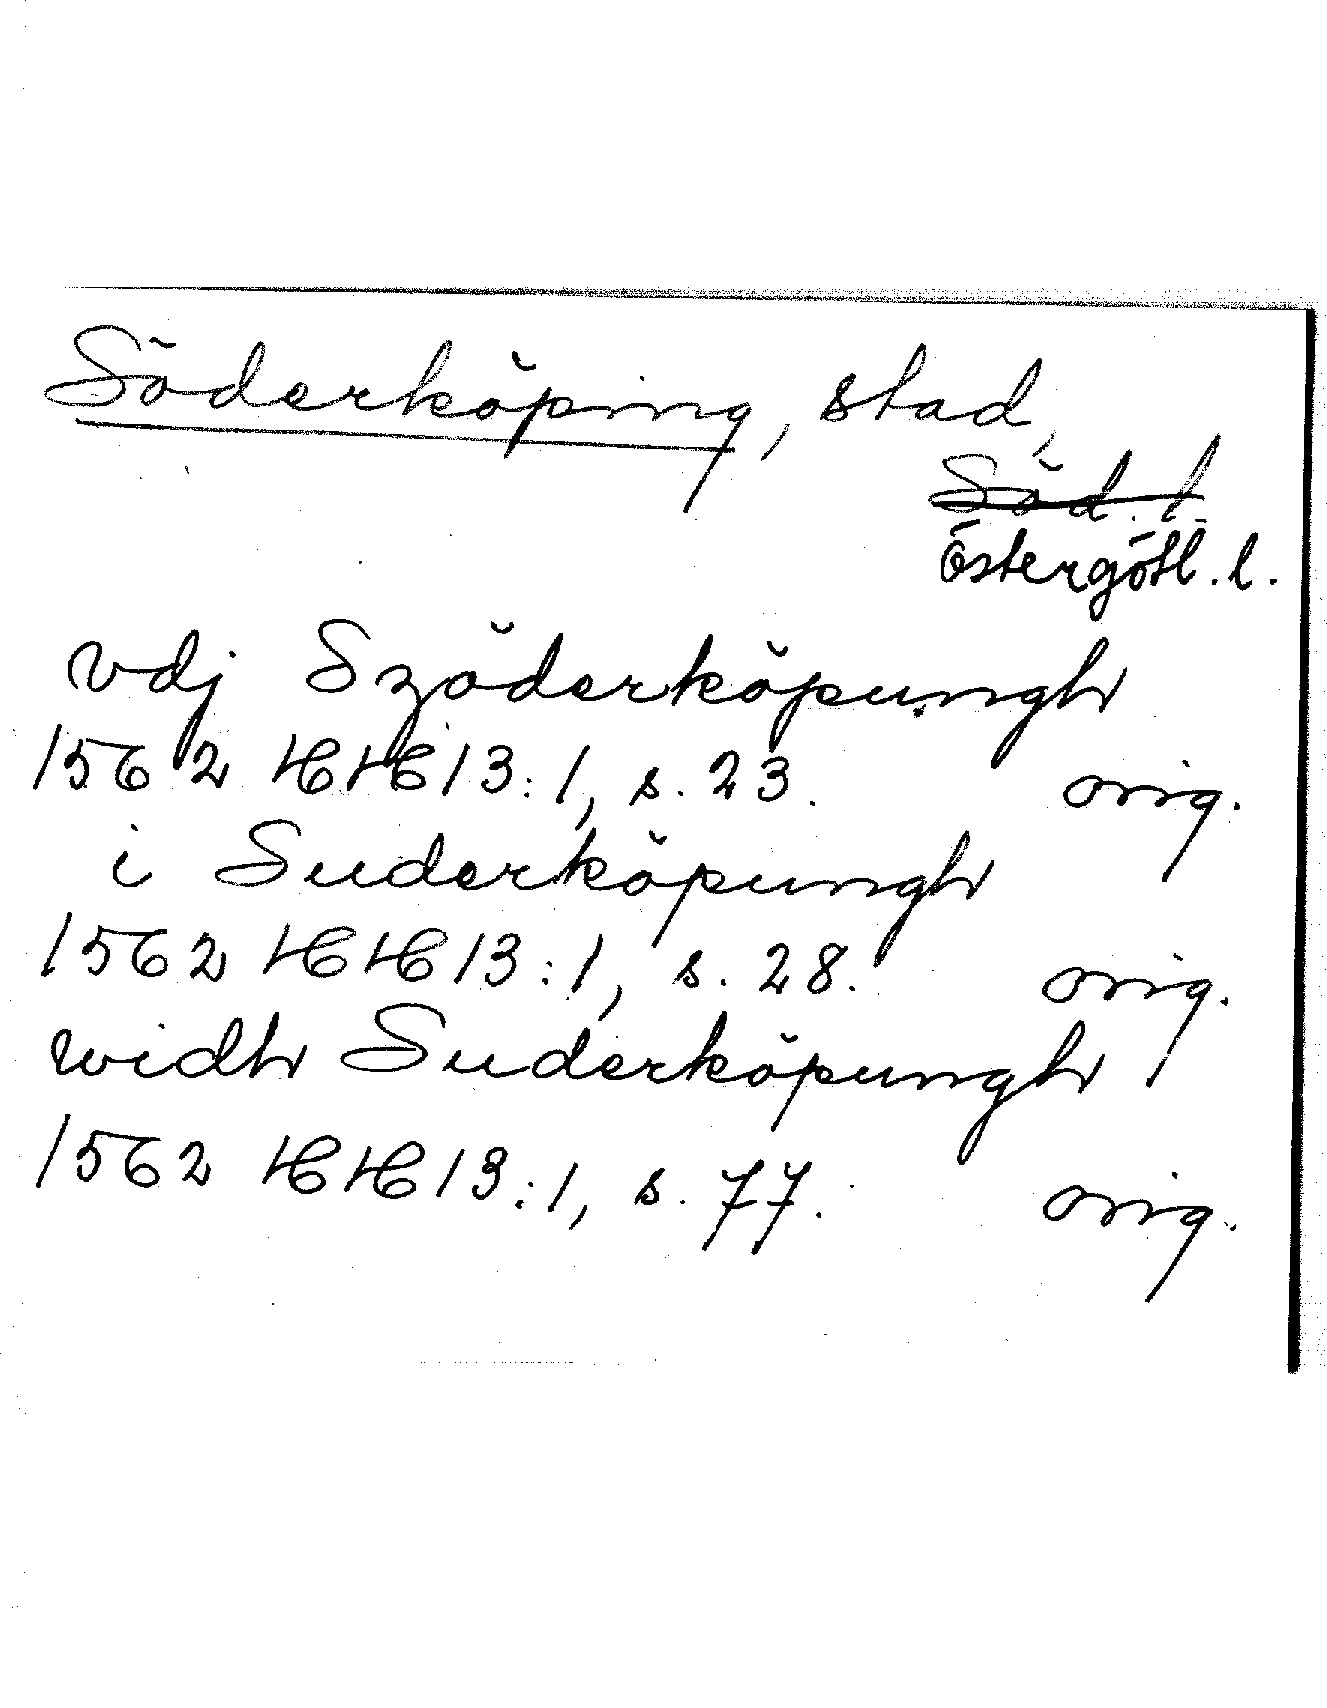 Söderköping, stad,
Söd. l.
Östergötl. l.
vdj Szöderköpungh
1562 HH 13:1, s. 23. orig.
i Suderköpungh
1562 HH 13:1, s. 28. orig.
widh Suderköpungh
1562 HH 13:1, s. 77. orig.